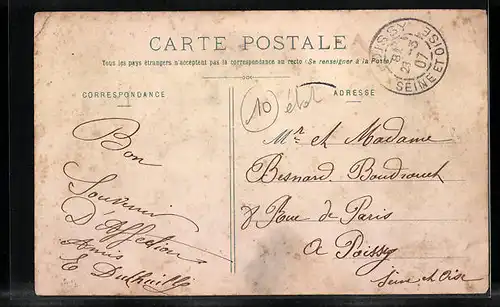 CARTE POSTALE
Tous les pays étrangers n'acceptent pas la correspondance au recto (Se renseigner à la Poste)
CORRESPONDANCE
ADRESSE
POISSY
07
SEINE ET OISE
10
Bon
Souvenir
D'Affection
E
Mr et Madame
Besnard
8 Rue de Paris
A Poissy
Seine et Oise